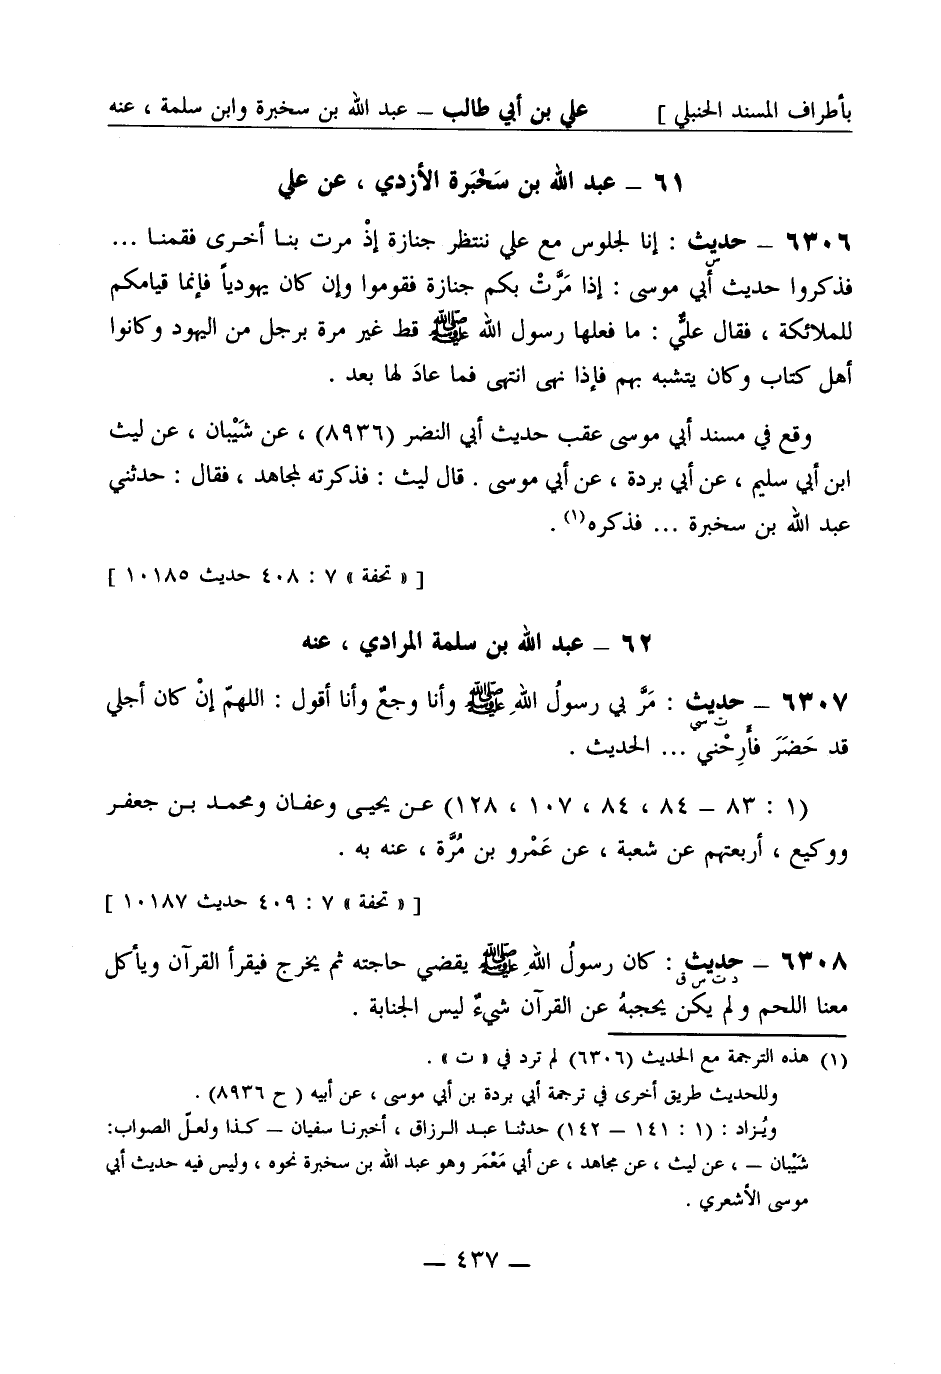 بأطراف المسند الحنبلي ] علي بن أبي طالب – عبد الله بن سخبرة وابن سلمة ، عنه
٦١ – عبد الله بن سَخْبَرة الأزدي ، عن علي
٦٣٠٦ – حديث : إنا لجلوس مع علي ننتظر جنازة إذْ مرت بنا أخرى فقمنا ...
س
فذكروا حديث أبي موسى : إذا مَرَّتْ بكم جنازة فقوموا وإن كان يهودياً فإنما قيامكم
للملائكة ، فقال عليٌّ : ما فعلها رسول الله ﷺ قط غير مرة برجل من اليهود وكانوا
أهل كتاب وكان يتشبه بهم فإذا نهى انتهى فما عادَ لها بعد .
وقع في مسند أبي موسى عقب حديث أبي النضر (٨٩٣٦) ، عن شَيْبان ، عن ليث
ابن أبي سليم ، عن أبي بردة ، عن أبي موسى . قال ليث : فذكرته لمجاهد ، فقال : حدثني
عبد الله بن سخبرة ... فذكره(١) .
[ « تحفة » ٧ : ٤٠٨ حديث ١٠١٨٥ ]
٦٢ – عبد الله بن سلمة المرادي ، عنه
٦٣٠٧ – حديث : مَرَّ بي رسولُ اللهِ ﷺ وأنا وجعٌ وأنا أقول : اللهمّ إنْ كان أجلي
ت سي
قد حَضَرَ فأرِحْني ... الحديث .
(١ : ٨٣ – ٨٤ ، ٨٤ ، ١٠٧ ، ١٢٨) عن يحيى وعفان ومحمد بن جعفر
ووكيع ، أربعتهم عن شعبة ، عن عَمْرو بن مُرَّة ، عنه به .
[ « تحفة » ٧ : ٤٠٩ حديث ١٠١٨٧ ]
٦٣٠٨ – حديث : كان رسولُ اللهِ ﷺ يقضي حاجته ثم يخرج فيقرأ القرآن ويأكل
د ت س ق
معنا اللحم ولم يكن يحجبهُ عن القرآن شيءٌ ليس الجنابة .
(١) هذه الترجمة مع الحديث (٦٣٠٦) لم ترد في « ت » .
وللحديث طريق أخرى في ترجمة أبي بردة بن أبي موسى ، عن أبيه ( ح ٨٩٣٦) .
ويُزاد : (١ : ١٤١ – ١٤٢) حدثنا عبد الرزاق ، أخبرنا سفيان – كذا ولعلّ الصواب:
شَيْبان – ، عن ليث ، عن مجاهد ، عن أبي مَعْمَر وهو عبد الله بن سخبرة نحوه ، وليس فيه حديث أبي
موسى الأشعري .
– ٤٣٧ –